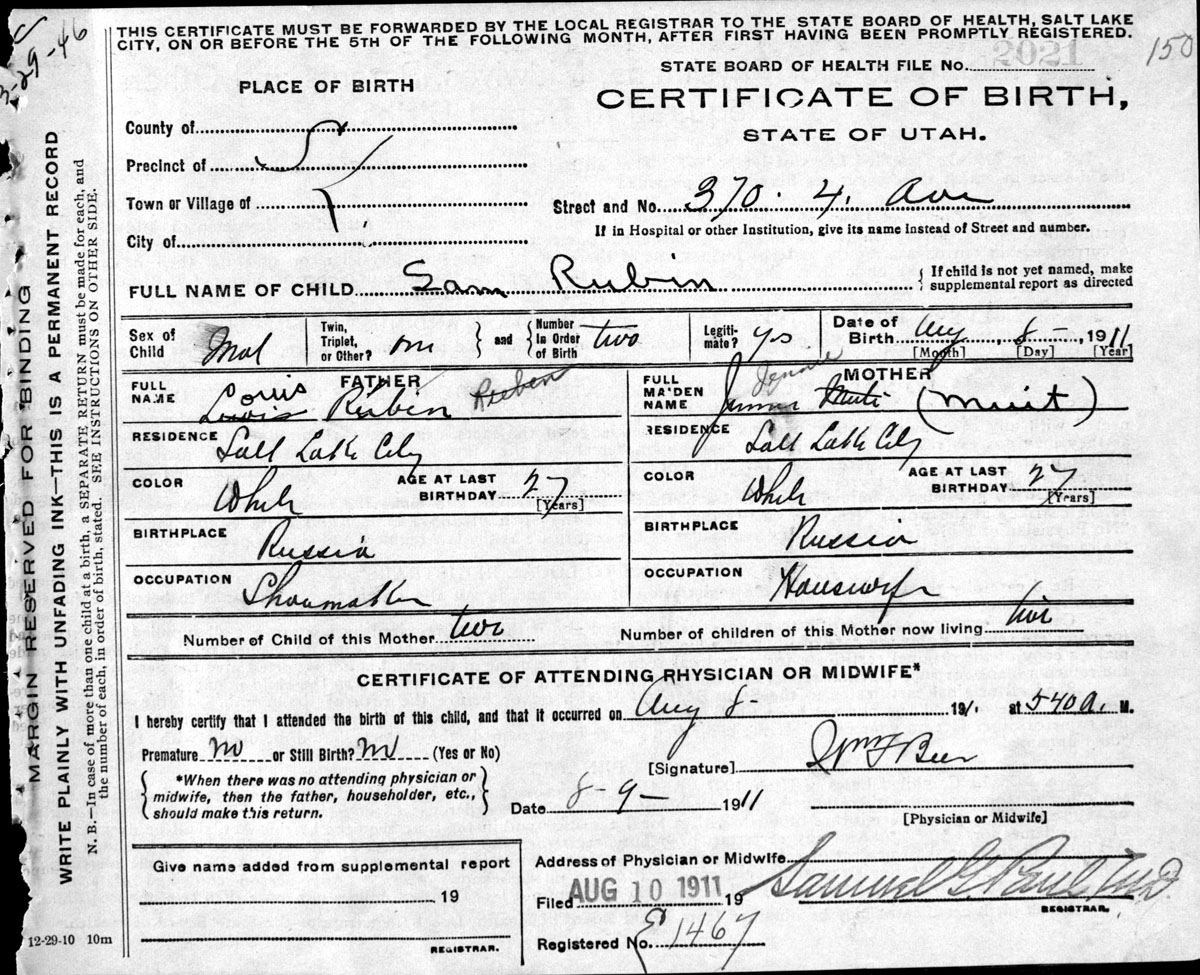 THIS CERTIFICATE MUST BE FORWARDED BY THE LOCAL REGISTRAR TO THE STATE BOARD OF HEALTH, SALT LAKE
CITY, ON OR BEFORE THE 5TH OF THE FOLLOWING MONTH, AFTER FIRST HAVING BEEN PROMPTLY REGISTERED.
29-46
150
2021
STATE BOARD OF HEALTH FILE No.
PLACE OF BIRTH
CERTIFICATE OF BIRTH,
STATE OF UTAH.
County of
Precinct of
Town or Village of
City of
S L
Street and No. 370. 4. Ave
If in Hospital or other Institution, give its name instead of Street and number.
FULL NAME OF CHILD Sam Rubin
{ If child is not yet named, make
supplemental report as directed
Sex of Child Mal
Twin, Triplet, or Other? } and { Number In Order of Birth two
Legiti-mate? ys
Date of Birth Aug 8-, 1911
[Month] [Day] [Year]
FATHER
FULL NAME Louis
Lewis Rubin Reuben
MOTHER
FULL MAIDEN NAME Jennie (Muit)
RESIDENCE Salt Lake City
RESIDENCE Salt Lake City
COLOR White AGE AT LAST BIRTHDAY 27 [Years]
COLOR White AGE AT LAST BIRTHDAY 27 [Years]
BIRTHPLACE Russia
BIRTHPLACE Russia
OCCUPATION Shoemaker
OCCUPATION Housewife
Number of Child of this Mother two
Number of children of this Mother now living two
CERTIFICATE OF ATTENDING PHYSICIAN OR MIDWIFE*
I hereby certify that I attended the birth of this child, and that it occurred on Aug 8- 191, at 540 A. M.
Premature no or Still Birth? no (Yes or No)
{ *When there was no attending physician or
midwife, then the father, householder, etc.,
should make this return. }
[Signature] Wm F Beer
Date 8-9- 1911
[Physician or Midwife]
Give name added from supplemental report
19
REGISTRAR.
Address of Physician or Midwife
Filed AUG 10 1911 19 Samuel G. Paul, M.D.
REGISTRAR.
Registered No. 1467
12-29-10 10m
MARGIN RESERVED FOR BINDING
WRITE PLAINLY WITH UNFADING INK—THIS IS A PERMANENT RECORD
N. B.—In case of more than one child at a birth, a SEPARATE RETURN must be made for each, and
the number of each, in order of birth, stated. SEE INSTRUCTIONS ON OTHER SIDE.